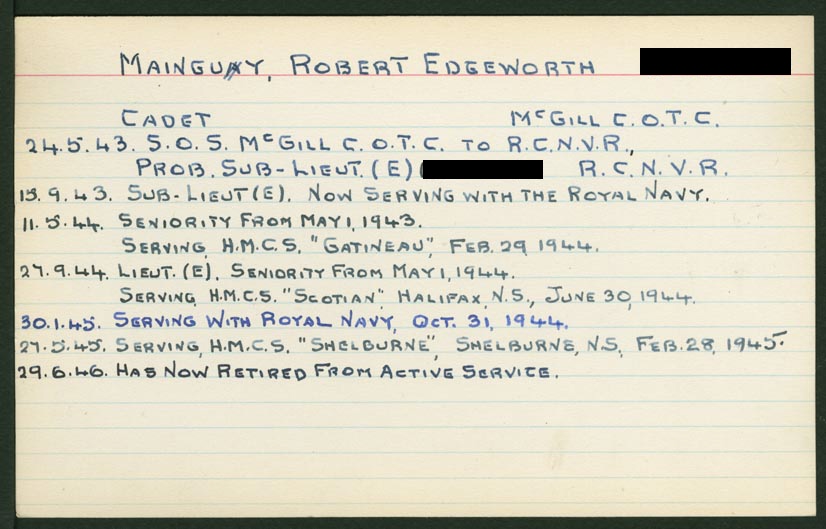 MAINGUY, ROBERT EDGEWORTH
CADET McGILL C.O.T.C.
24.5.43. S.O.S. McGILL C.O.T.C. TO R.C.N.V.R.,
PROB. SUB-LIEUT. (E) ( R.C.N.V.R.
13.9.43. SUB-LIEUT (E). NOW SERVING WITH THE ROYAL NAVY.
11.5.44. SENIORITY FROM MAY 1, 1943.
SERVING, H.M.C.S. "GATINEAU", FEB. 29, 1944.
27.9.44. LIEUT. (E). SENIORITY FROM MAY 1, 1944.
SERVING, H.M.C.S. "SCOTIAN", HALIFAX, N.S., JUNE 30, 1944.
30.1.45. SERVING WITH ROYAL NAVY, OCT. 31, 1944.
27.5.45. SERVING, H.M.C.S. "SHELBURNE", SHELBURNE, N.S. FEB. 28, 1945.
29.6.46. HAS NOW RETIRED FROM ACTIVE SERVICE.